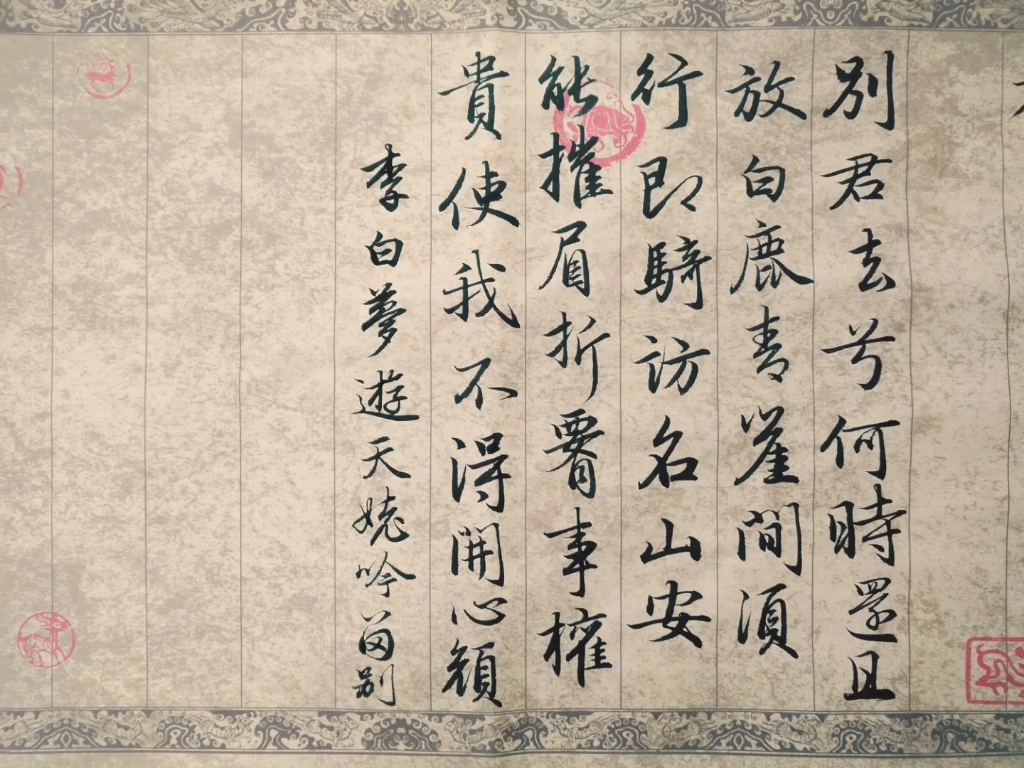 別君去兮何時還且
放白鹿青崖間須
行即騎訪名山安
能摧眉折腰事權
貴使我不得開心顏
李白夢遊天姥吟留别